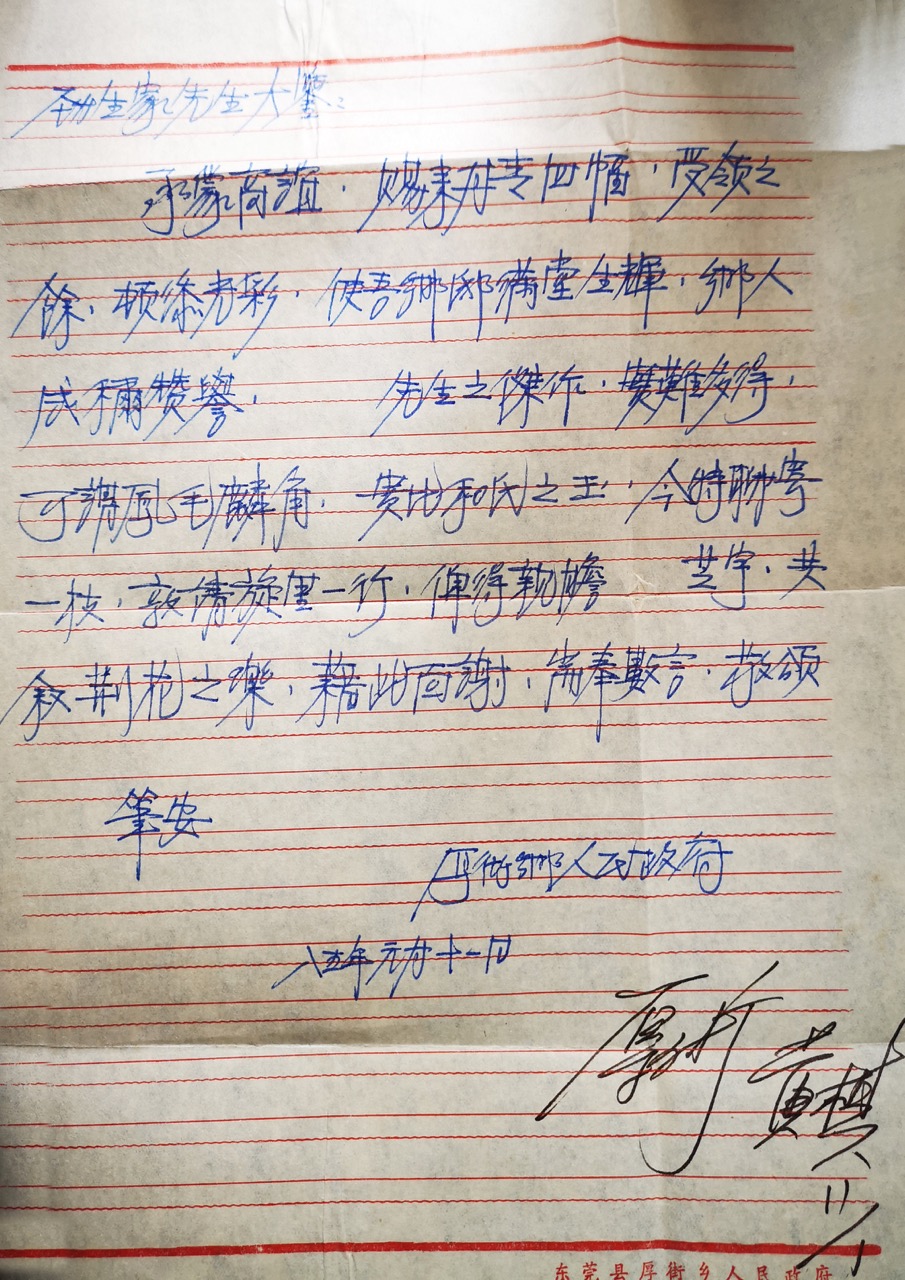 生家先生大鑒:
承蒙高誼,賜来丹青四幅,受领之
餘,頓添光彩,使吾鄉邸满堂生輝,鄉人
咸稱赞譽。 先生之傑作,實難多得,
可謂鳳毛麟角,貴比和氏之玉,今特聊寄
一枝,敦请旋里一行,俾得親瞻 芝宇,共
叙荆花之樂,藉此回謝,耑奉數言,敬颂
筆安
厚街鄉人民政府
八五年元月十一日
厚街 黄
东莞县厚街乡人民政府